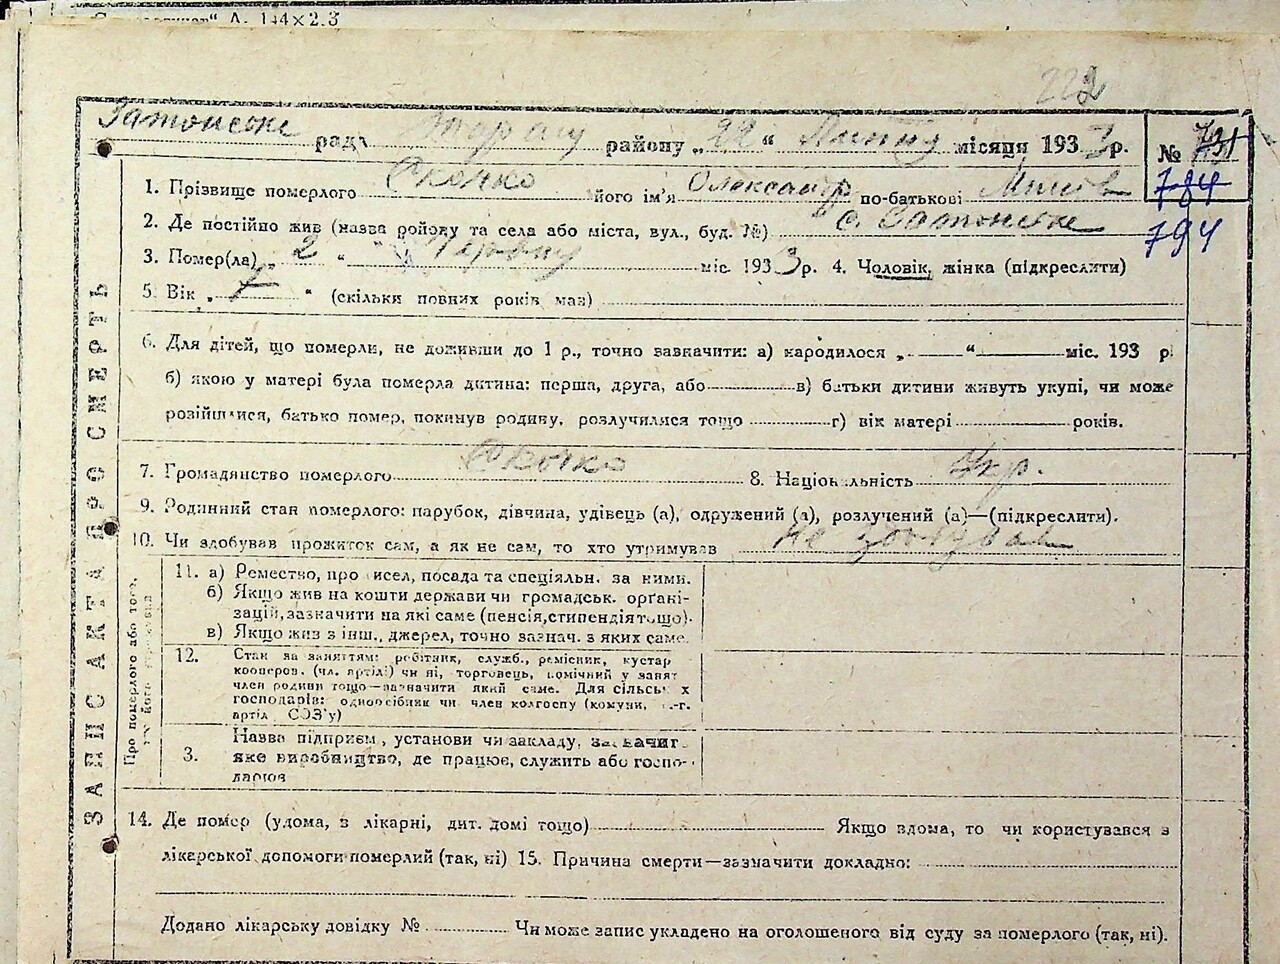 А. 144×2.3
222
Затонське рада району „22“ Липня місяця 1933 р. №
731
784
794
1. Прізвище померлого його ім'я Олександр по-батькові
2. Де постійно жив (назва району та села або міста, вул., буд. №) с. Затонське
3. Помер(ла) „2“ міс. 1933 р. 4. Чоловік, жінка (підкреслити)
5. Вік „ “ (скільки повних років мав)
6. Для дітей, що померли, не доживши до 1 р., точно зазначити: а) народилося „ “ міс. 193 р.
б) якою у матері була померла дитина: перша, друга, або в) батьки дитини живуть укупі, чи може
розійшлися, батько помер, покинув родину, розлучилися тощо г) вік матері років.
7. Громадянство померлого 8. Національність Укр.
9. Родинний стан померлого: парубок, дівчина, удівець (а), одружений (а), розлучений (а)—(підкреслити).
10. Чи здобував прожиток сам, а як не сам, то хто утримував не здобував
ЗАПИС АКТА ПРО СМЕРТЬ
Про померлого або того,
11. а) Ремество, промисел, посада та спеціяльн. за ними.
б) Якщо жив на кошти держави чи громадськ. орґані-
зацій, зазначити на які саме (пенсія, стипендія тощо).
в) Якщо жив з інш., джерел, точно зазнач. з яких саме.
12. Стан за заняттям: робітник, служб., ремісник, кустар
кооперов. (чл. артілі) чи ні, торговець, помічний у занят
член родини тощо—зазначити який саме. Для сільськ х
господарів: одноосібник чи член колгоспу (комуни, с.-г.
артіл СОЗ'у)
3. Назва підприєм., установи чи закладу, зазначит
яке виробництво, де працює, служить або госпо-
дарює
14. Де помер (удома, в лікарні, дит. домі тощо) Якщо вдома, то чи користувався з
лікарської допомоги померлий (так, ні) 15. Причина смерти—зазначити докладно:
Додано лікарську довідку № Чи може запис укладено на оголошеного від суду за померлого (так, ні).